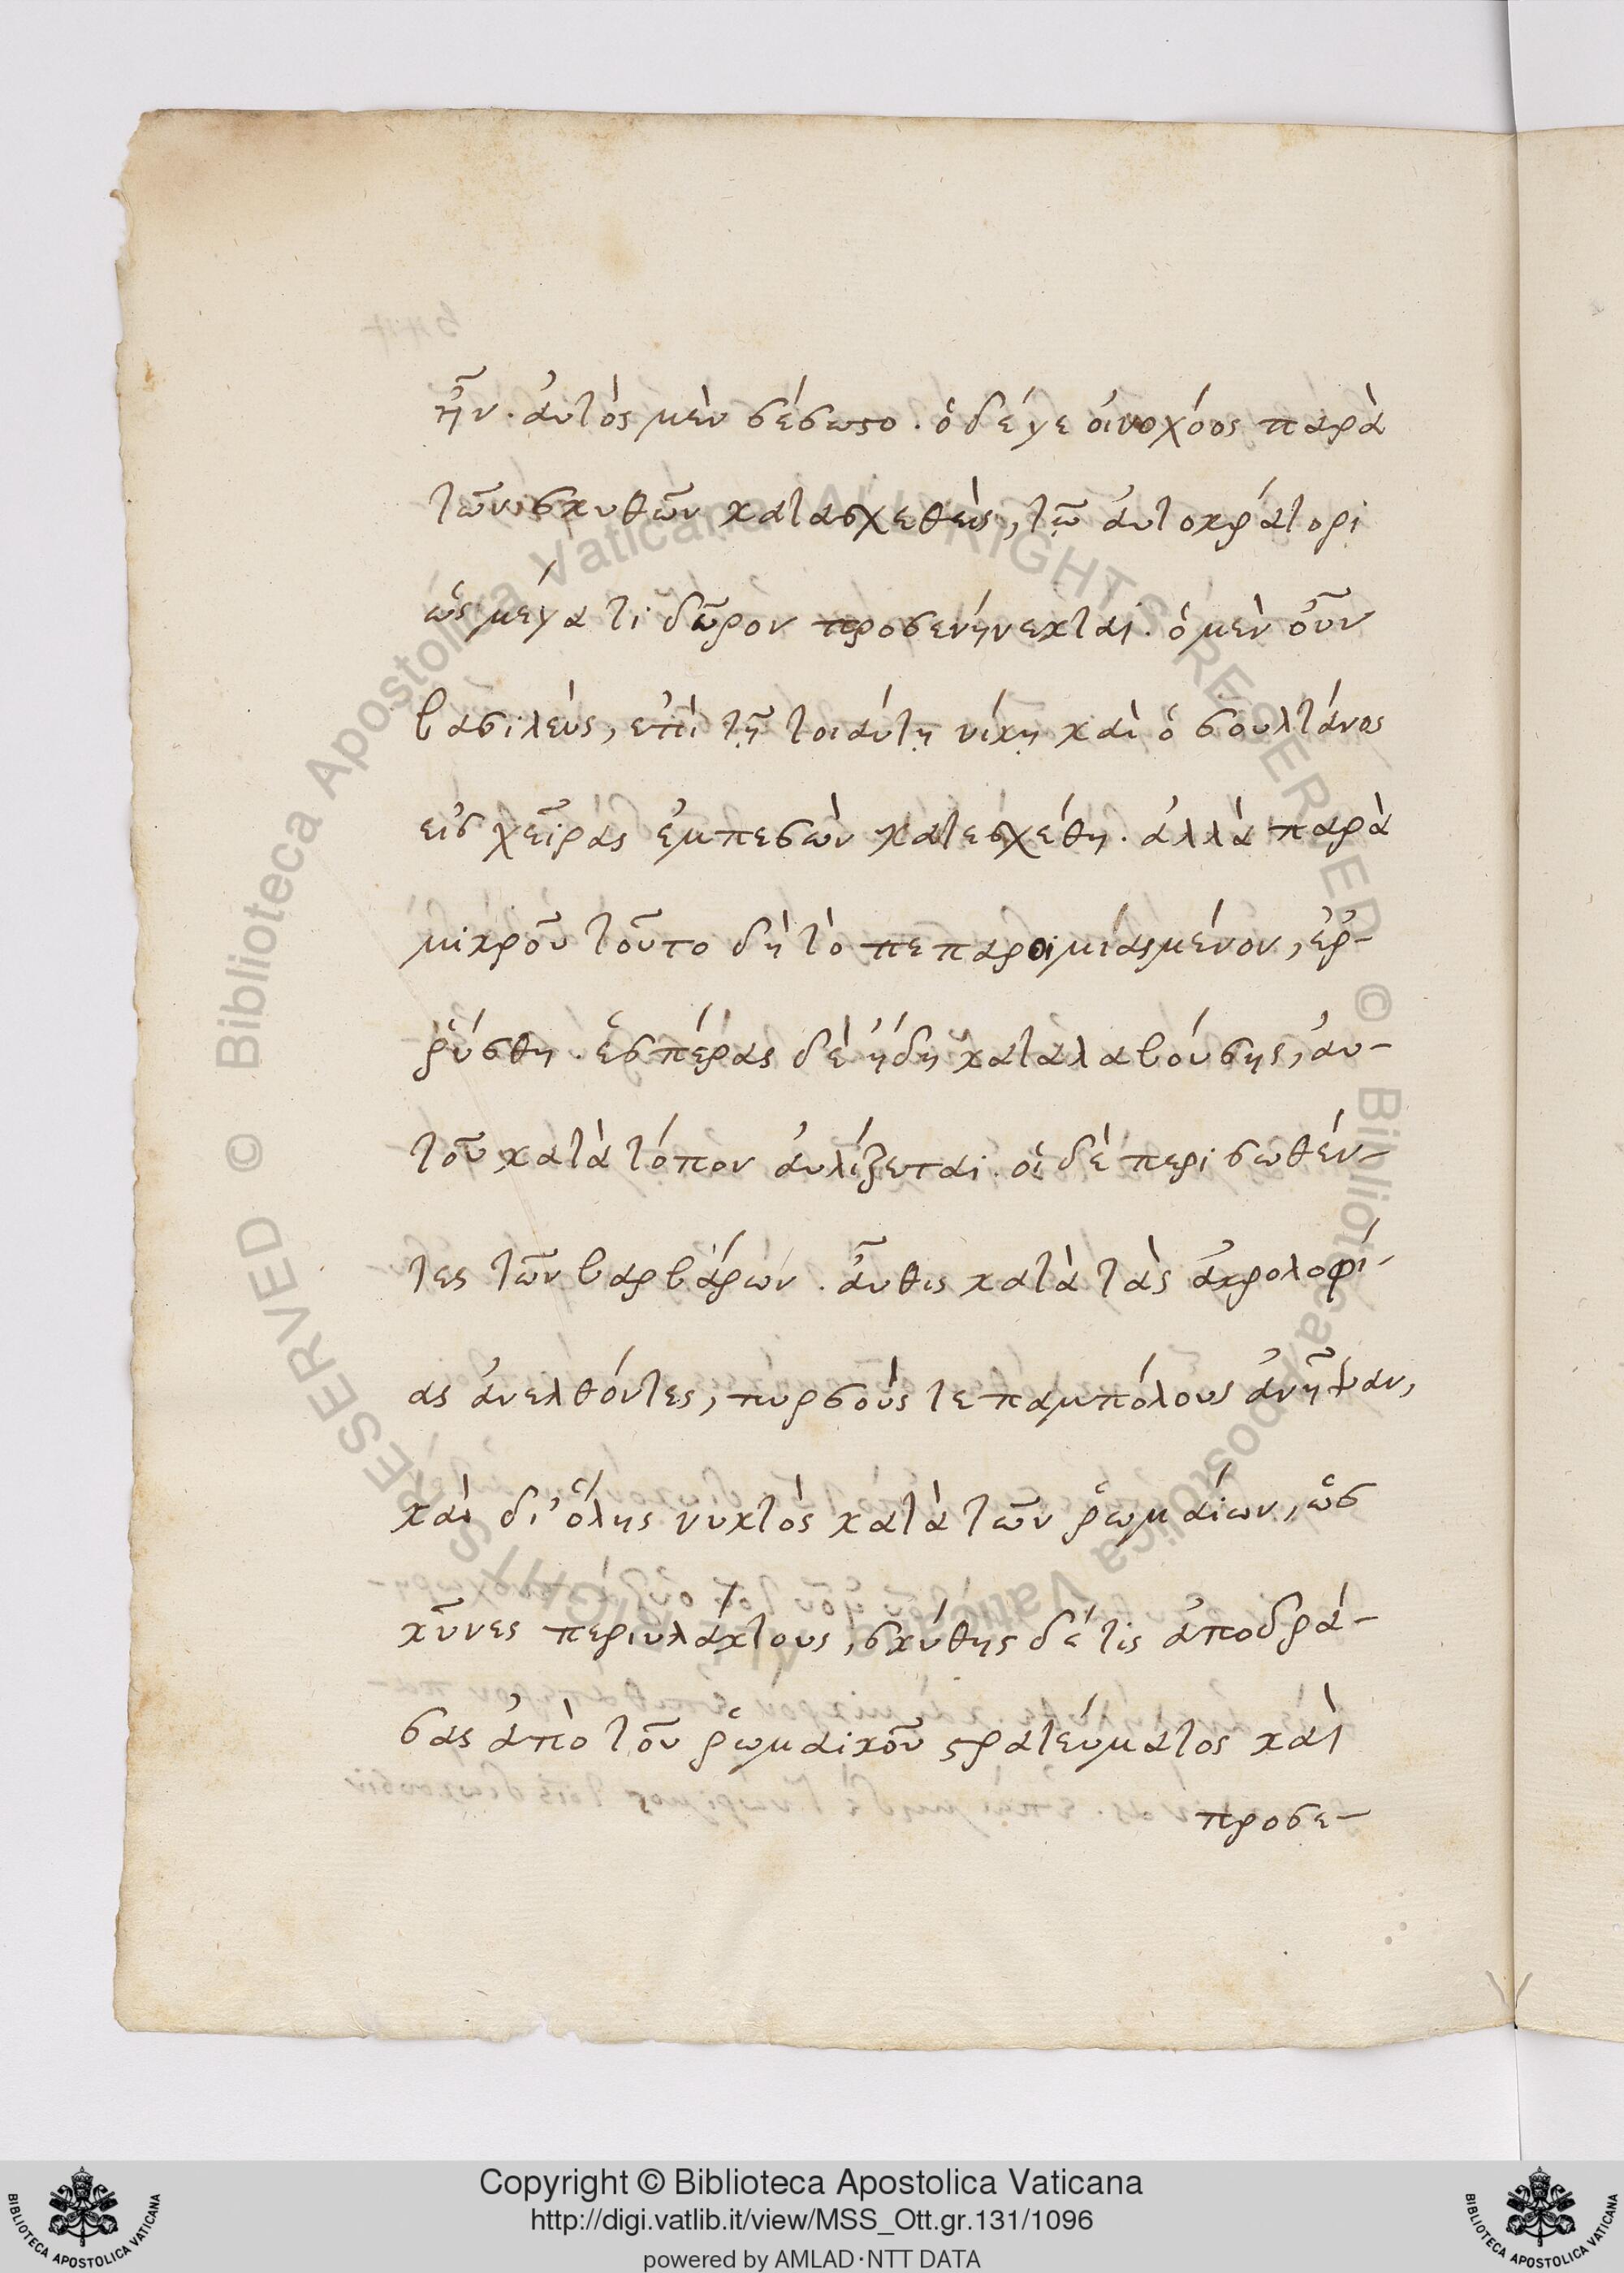 ἦν. ἀυτὸς μὲν σέσωστο. ὁ δέγε οἰνοχόος παρὰ
τῶν σκυθῶν κατασχεθεὶς, τῷ ἀυτοκράτορι
ὥς μέγα τι δῶρον προσενήνεκται. ὁ μὲν οὖν
βασιλεὺς, ἐπὶ τῇ τοιάυτῃ νίκῃ καὶ ὁ σουλτάνος
εἰσ χεῖρας ἐμπεσὼν κατεσχέθη. ἀλλὰ παρὰ
μικροῦ τοῦτο δὴ τὸ πεπαροιμιασμένον, ἐρ-
ῥύσθη. ἑσπέρας δὲ ἤδη καταλαβούσης, ἀυ-
τοῦ κατὰ τόπον ἀυλίζεται. οἱ δὲ περισωθέν-
τες τῶν βαρβάρων. ἆυθις κατὰ τὰς ἀκρολοφί-
ας ἀνελθόντες, πυρσοὺς τε παμπόλους ἀνῆψαν,
καὶ δι' ὅλης νυκτὸς κατὰ τῶν ῥωμαίων, ὥσ
κῦνες περιυλάκτουν, σκύθης δέ τις ἀποδρά-
σας ἀπὸ τοῦ ῥωμαικοῦ στρατεύματος καὶ
προσε-
Copyright © Biblioteca Apostolica Vaticana
http://digi.vatlib.it/view/MSS_Ott.gr.131/1096
powered by AMLAD·NTT DATA
BIBLIOTECA APOSTOLICA VATICANA
BIBLIOTECA APOSTOLICA VATICANA
© Biblioteca Apostolica Vaticana ALL RIGHTS RESERVED
© Biblioteca Apostolica Vaticana ALL RIGHTS RESERVED